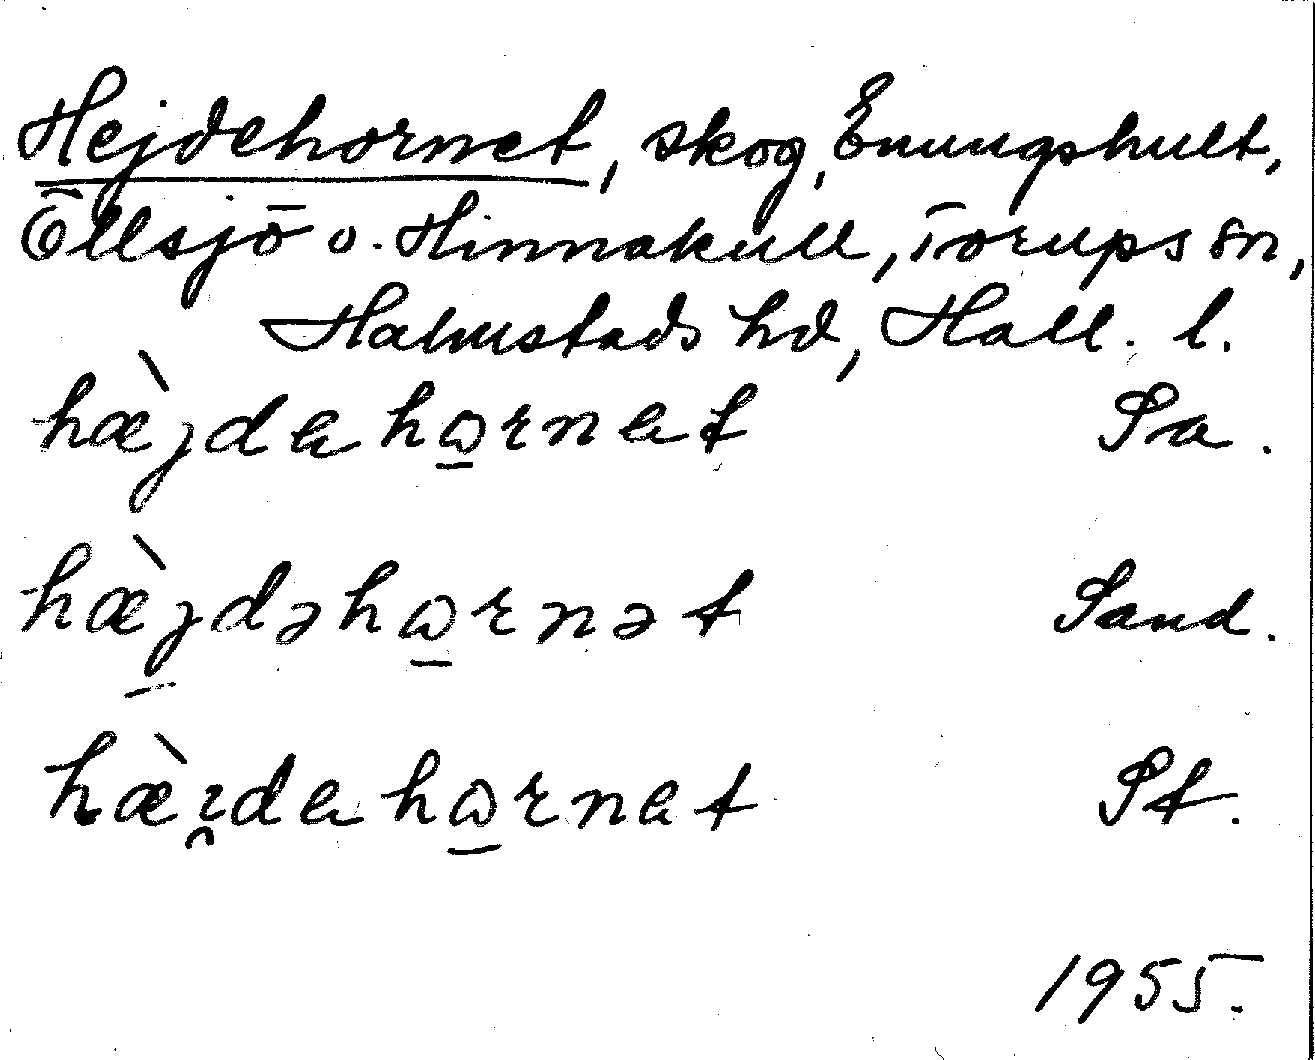 Hejdehornet, skog, Enungshult,
Öllsjö o. Hinnakull, Torups sn,
Halmstads hd, Hall. l.
hæ̀jdahɷ̲rnat Sa.
hæ̀jdəhɷ̲rnət Sand.
hæ̀i̯dahɷ̲rnat St.
1955.